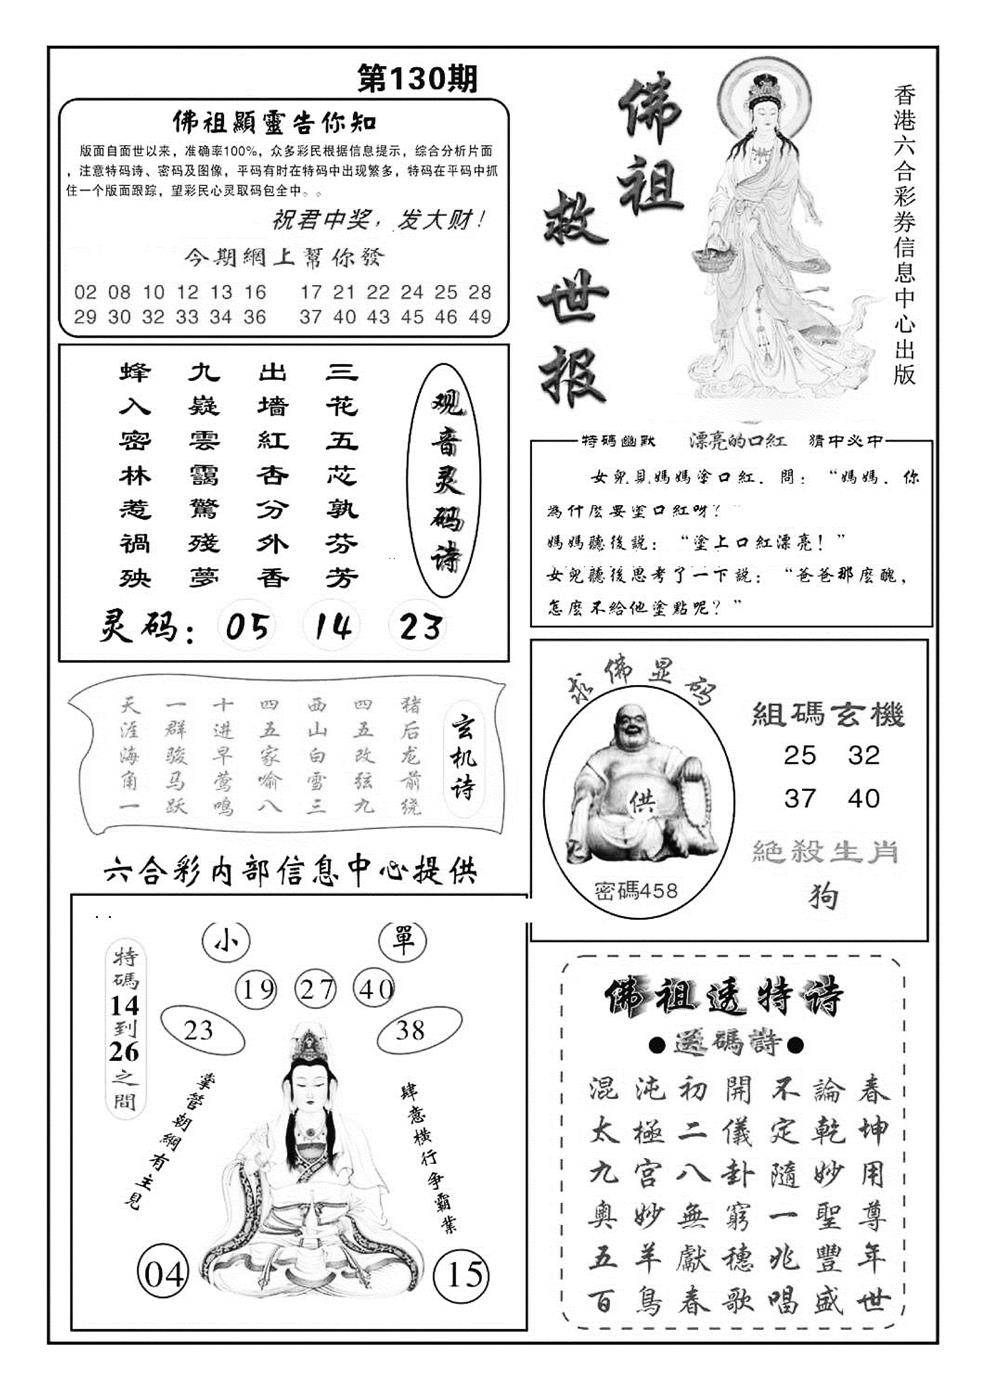 第130期
佛祖顯靈告你知
版面自面世以来，准确率100%，众多彩民根据信息提示，综合分析片面
，注意特码诗、密码及图像，平码有时在特码中出现繁多，特码在平码中抓
住一个版面跟踪，望彩民心灵取码包全中。。
祝君中奖，发大财！
今期網上幫你發
02 08 10 12 13 16 17 21 22 24 25 28
29 30 32 33 34 36 37 40 43 45 46 49
佛祖
救世报
香港六合彩券信息中心出版
观音灵码诗
三花五芯孰芬芳
出墙紅杏分外香
九嶷雲靄驚殘夢
蜂入密林惹禍殃
灵码：05 14 23
特碼幽默 漂亮的口紅 猜中必中
女兒見媽媽塗口紅．問：“媽媽．你
為什麼要塗口紅呀？
媽媽聽後説：“塗上口紅漂亮！”
女兒聽後思考了一下說：“爸爸那麼醜，
怎麼不給他塗點呢？”
玄机诗
猪后龙前绕
四五改弦九
西山白雪三
四五家喻八
十进早莺鸣
一群骏马跃
天涯海角一
求佛显码
供
密碼458
組碼玄機
25 32
37 40
絕殺生肖
狗
六合彩内部信息中心提供
特碼14到26之間
小 單
19 27 40
23 38
掌管朝綱有主見
肆意橫行争霸業
04 15
佛祖透特诗
●送碼詩●
混沌初開不論春
太極二儀定乾坤
九宮八卦隨妙用
奧妙無窮一聖尊
五羊獻穗兆豐年
百鳥春歌唱盛世